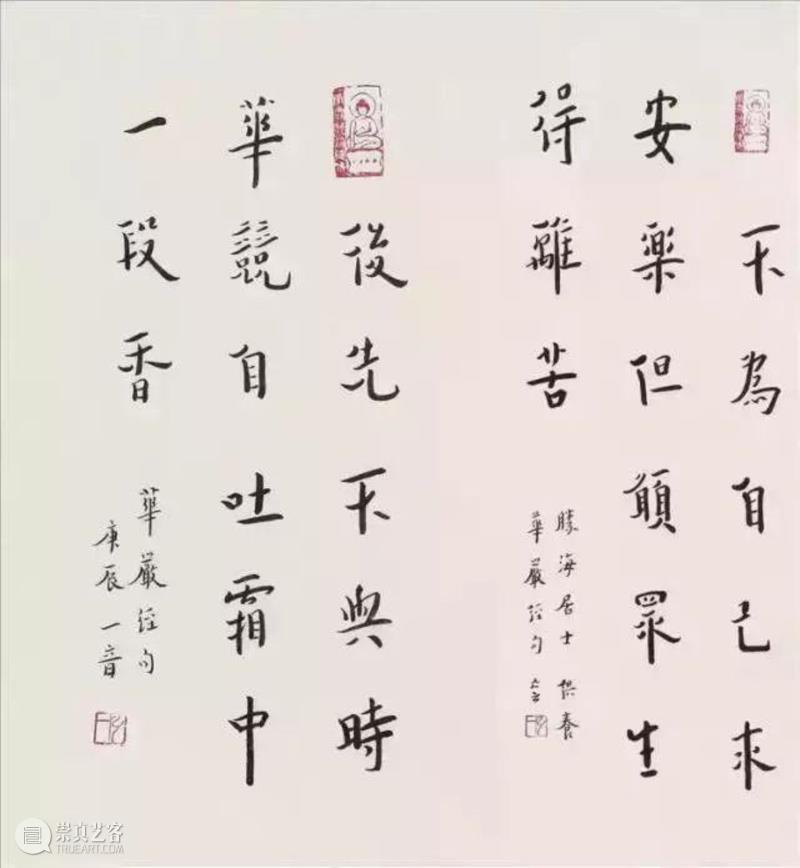 不為自己求
安樂但願眾生
得離苦
勝海居士 供養
華嚴經句
後先不與時
華競自吐霜中
一段香
華嚴經句
庚辰一音
崇真艺客
TRUEART.COM